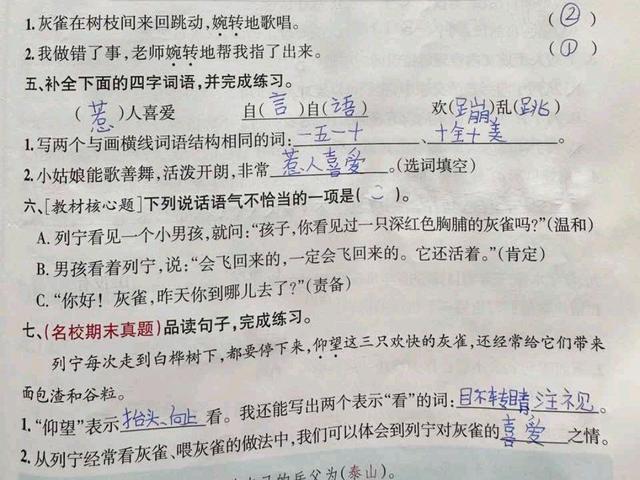 1.灰雀在树枝间来回跳动,婉转地歌唱。 (②)
2.我做错了事,老师婉转地帮我指了出来。 (①)
五、补全下面的四字词语,并完成练习。
(惹)人喜爱 自(言)自(语) 欢(蹦)乱(跳)
1.写两个与画横线词语结构相同的词:一五一十、十全十美。
2.小姑娘能歌善舞,活泼开朗,非常惹人喜爱。(选词填空)
六、[教材核心题]下列说话语气不恰当的一项是( C )。
A. 列宁看见一个小男孩,就问:“孩子,你看见过一只深红色胸脯的灰雀吗?”(温和)
B. 男孩看着列宁,说:“会飞回来的,一定会飞回来的。它还活着。”(肯定)
C. “你好!灰雀,昨天你到哪儿去了?”(责备)
七、(名校期末真题)品读句子,完成练习。
列宁每次走到白桦树下,都要停下来,仰望这三只欢快的灰雀,还经常给它们带来
面包渣和谷粒。
1.“仰望”表示抬头、向上看。我还能写出两个表示“看”的词:目不转睛 注视。
2.从列宁经常看灰雀、喂灰雀的做法中,我们可以体会到列宁对灰雀的喜爱之情。
的岳父为(泰山)。